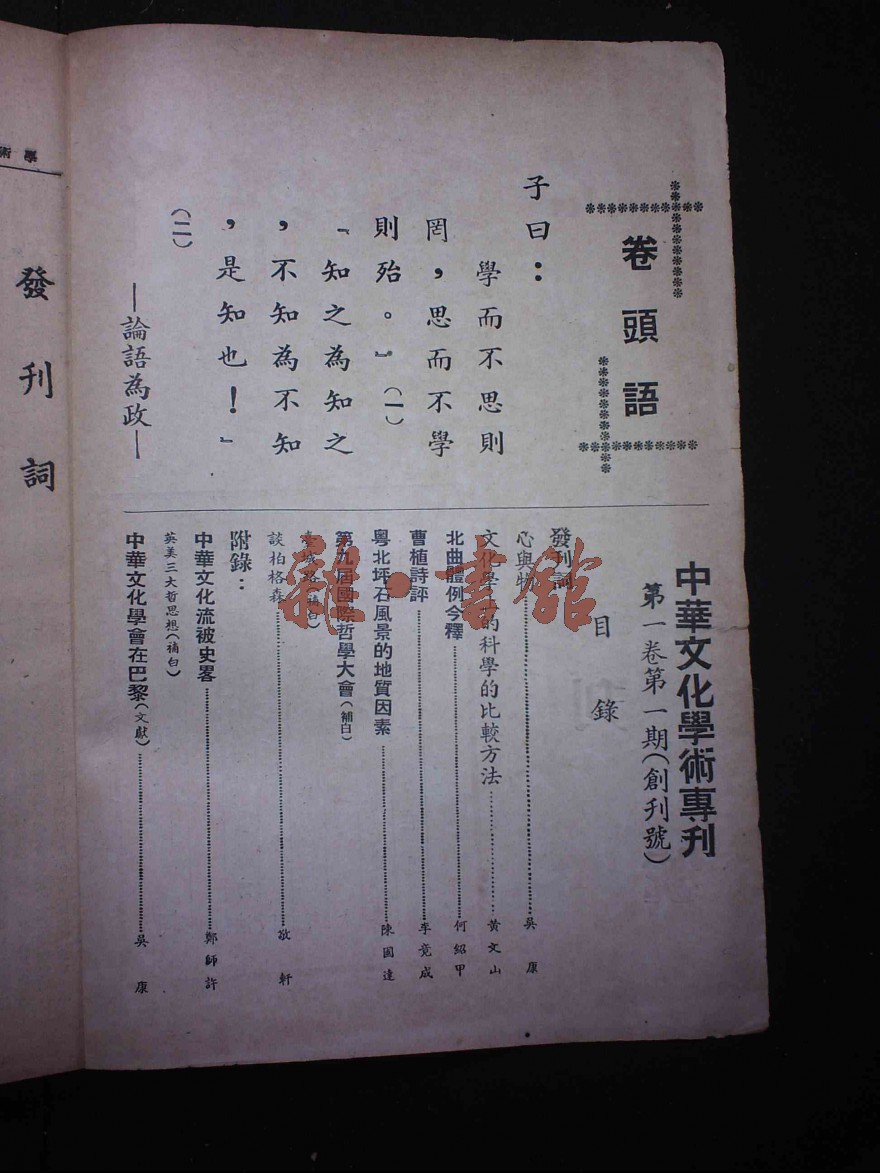 卷頭語
子曰：
學而不思則
罔，思而不學
則殆。』(一)
『知之為知之
，不知為不知
，是知也！』
(二)
—論語為政—
中華文化學術專刊
第一卷第一期(創刊號)
目錄
發刊詞
心與物 吳康
文化學上的科學的比較方法 黃文山
北曲體例今釋 何紹甲
曹植詩評 李竟成
粵北坪石風景的地質因素 陳國達
第九屆國際哲學大會(補白)
(補白)
談柏格森 敬軒
附錄：
中華文化流被史畧 鄭師許
英美三大哲思想(補白)
中華文化學會在巴黎(文獻) 吳康
學術
發刊詞
雜·書館